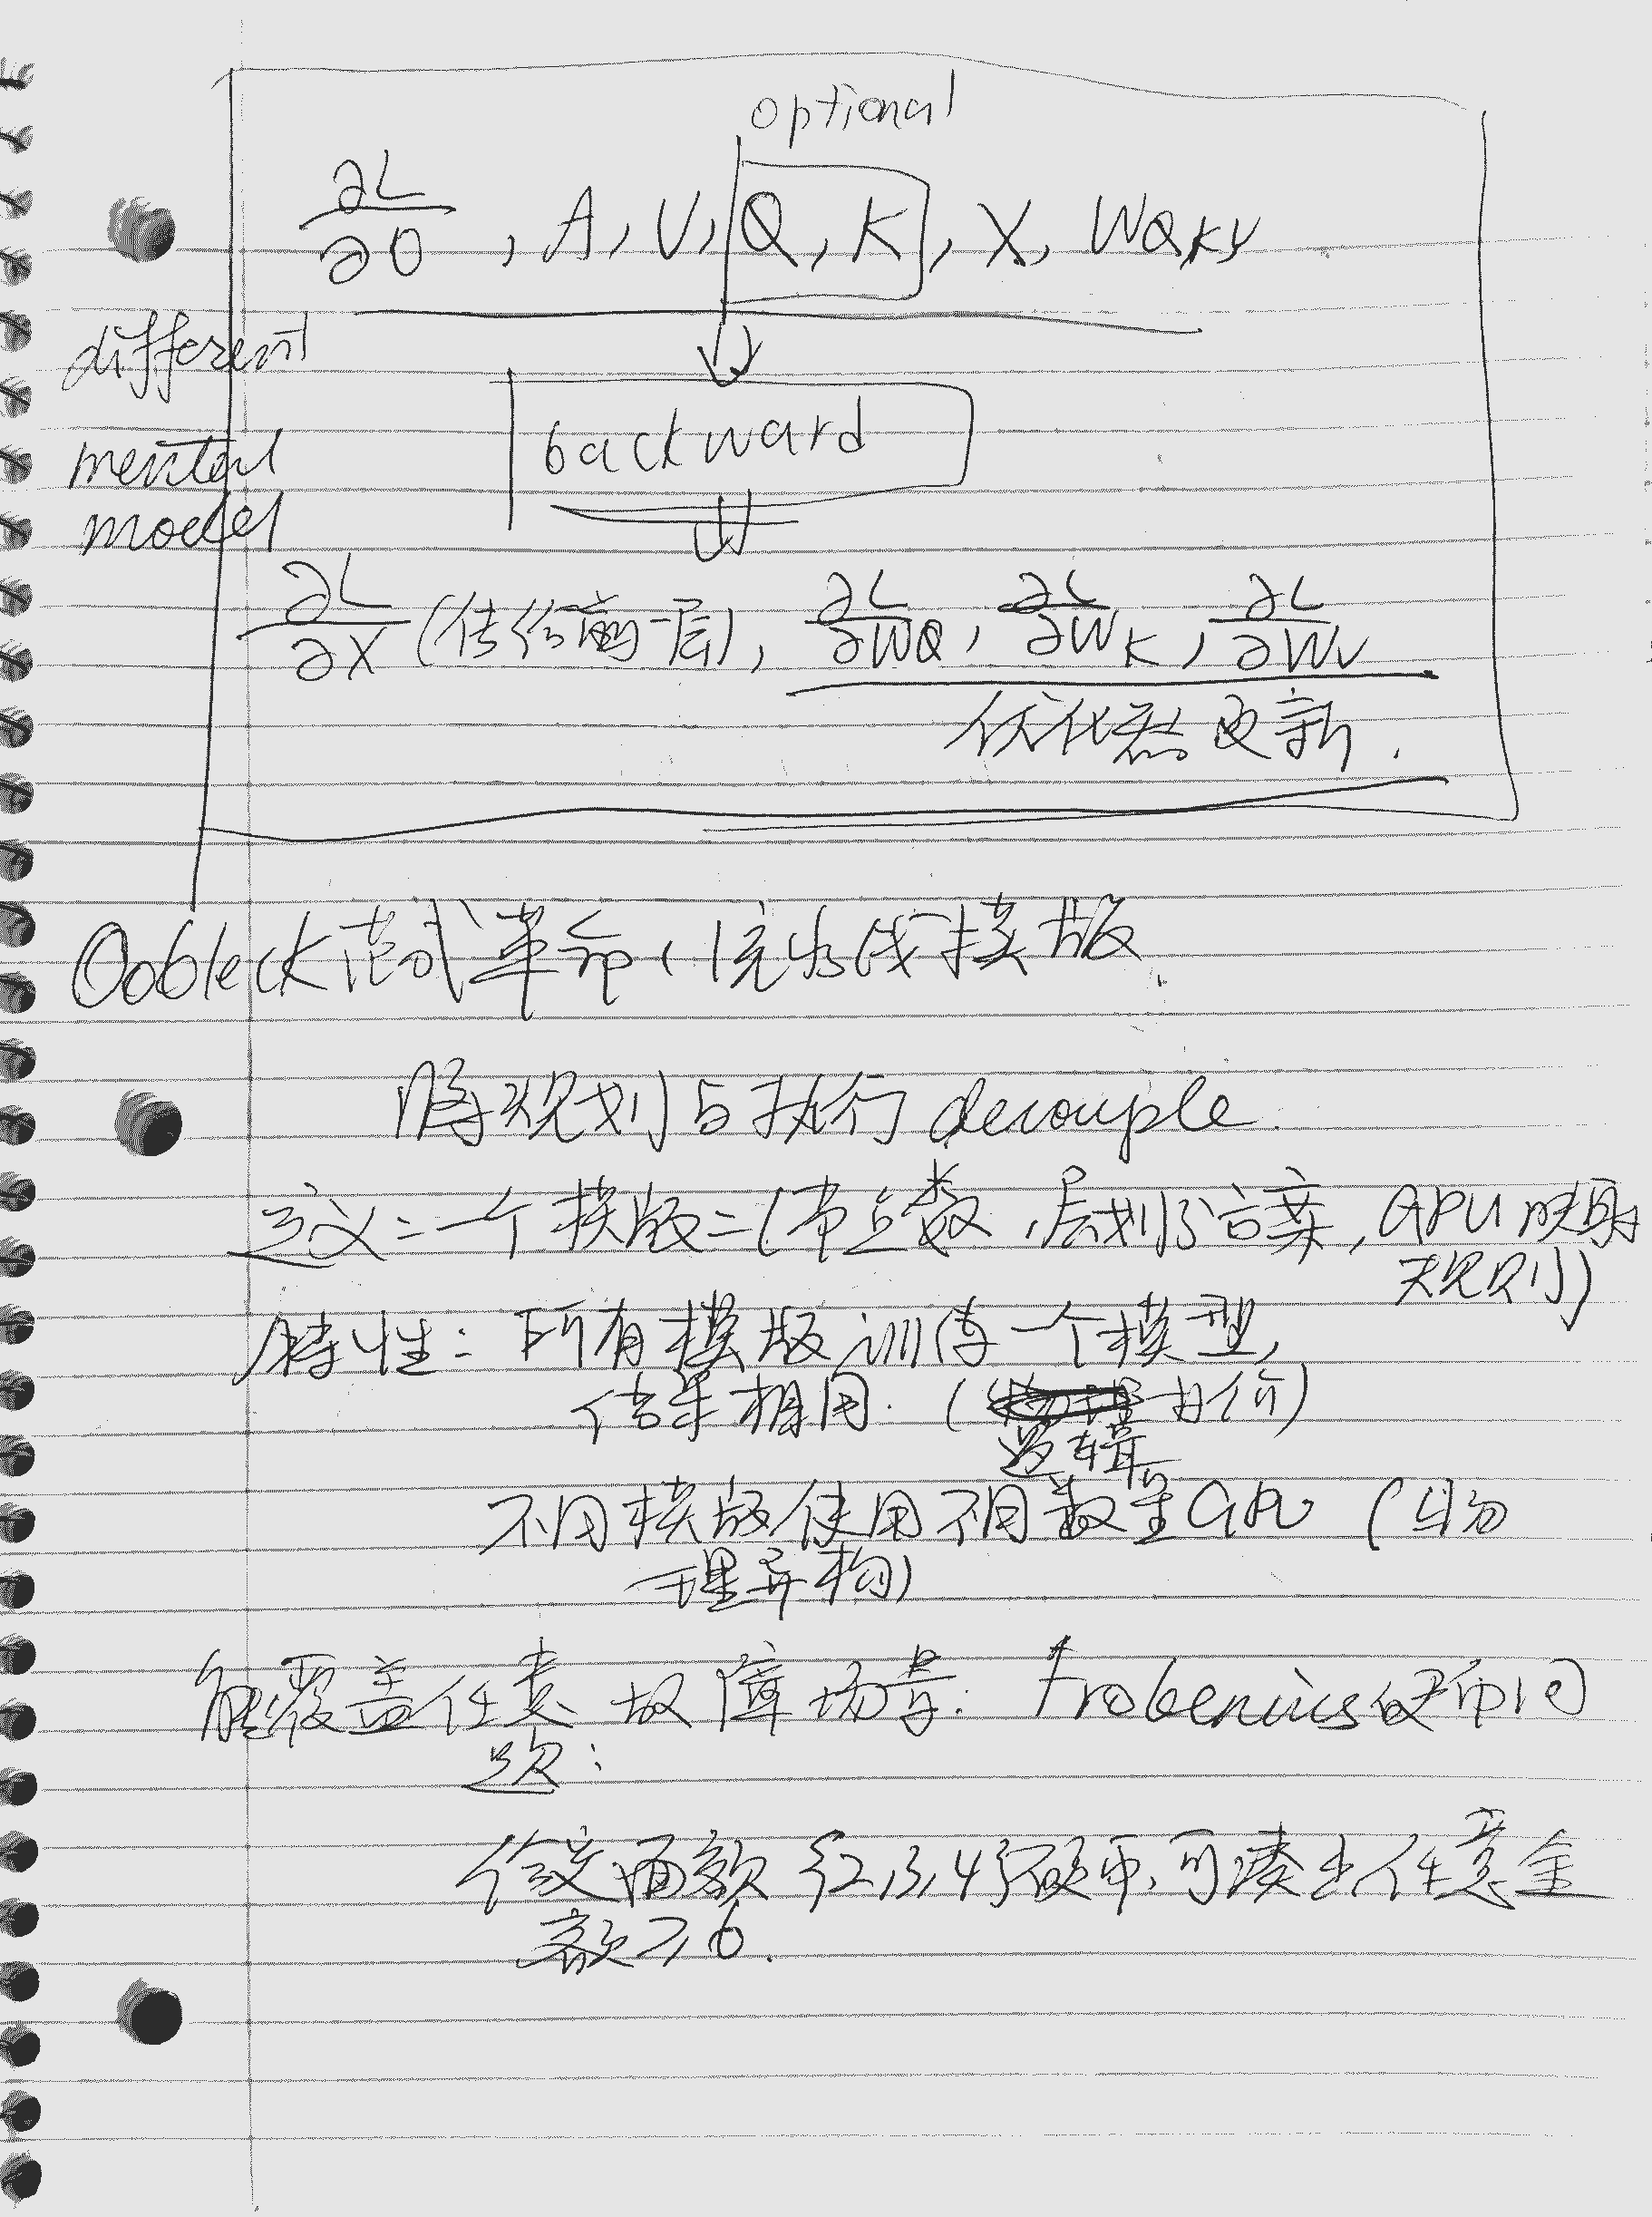 optional
∂L/∂O , A, V, Q, K, X, WQ,K,V
different
mental
model
backward
∂L/∂X (传给前一层), ∂L/∂WQ, ∂L/∂WK, ∂L/∂WV
优化器更新.
Oobleck范式革命:流水线模版
将规划与执行decouple.
定义:一个模版=(节点数,层划分方案,GPU映射
规则)
特性: 所有模版训练一个模型,
结果相同. (逻辑等价)
不同模版使用不同数量GPU (物
理异构)
能覆盖任意故障场景: Frobenius硬币问
题:
给定面额{2,3,4}硬币,可凑出任意金
额≥6.